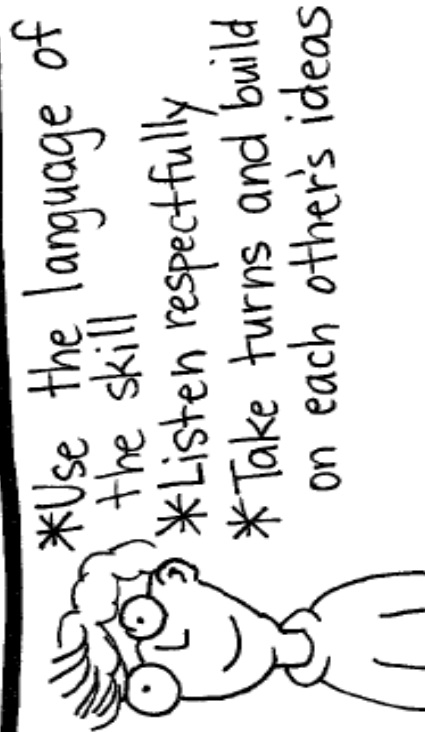 *Use the language of
the skill
*Listen respectfully
*Take turns and build
on each other's ideas